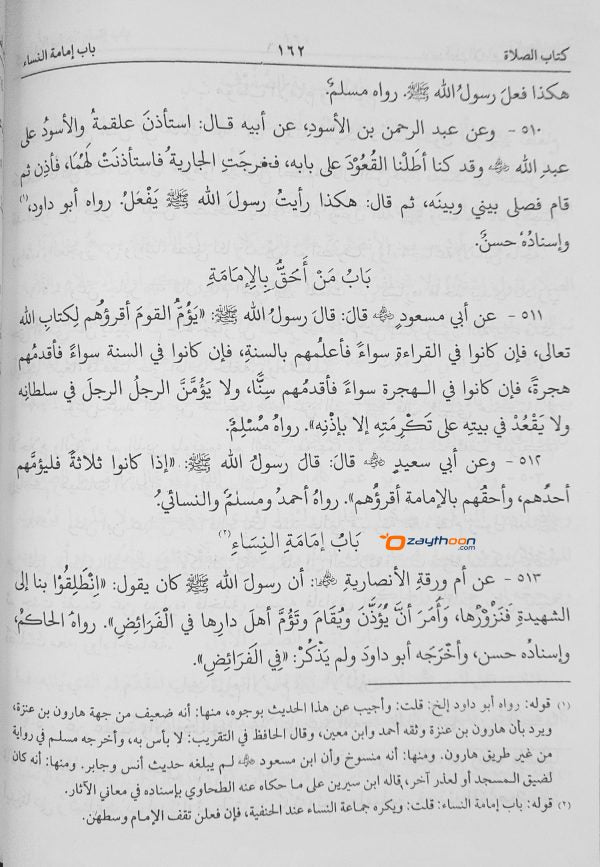 كتاب الصلاة ١٦٢ باب إمامة النساء
هكذا فعلَ رسولُ الله ﷺ. رواه مسلمٌ.
٥١٠ - وعن عبد الرحمن بن الأسودِ، عن أبيه قال: استأذنَ علقمةُ والأسودُ على
عبدِ الله ﷺ وقد كنا أطَلْنا القُعُوْدَ على بابه، فخرجَتِ الجاريةُ فاستأذنَتْ لَهُمَا، فأذِن ثم
قام فصلى بيني وبينَه، ثم قال: هكذا رأيتُ رسولَ الله ﷺ يَفْعَلُ. رواه أبو داود،(١)
وإسنادُهُ حسنٌ.
بَابُ مَنْ أَحَقُّ بِالإِمَامَةِ
٥١١ - عن أبي مسعودٍ ﷺ قالَ: قالَ رسولُ الله ﷺ: «يَؤُمُّ القومَ أقرؤُهم لِكتابِ الله
تعالى، فإن كانوا في القراءةِ سواءً فأعلمُهم بالسنةِ، فإن كانوا في السنة سواءً فأقدمُهم
هجرةً، فإن كانوا في الهجرة سواءً فأقدمُهم سِنًّا، ولا يَؤُمَّنَّ الرجلُ الرجلَ في سلطانِه
ولا يَقْعُدْ في بيتِه على تَكْرِمَتِه إلا بإذْنِه». رواهُ مُسْلِمٌ.
٥١٢ - وعن أبي سعيدٍ ﷺ قالَ: قالَ رسولُ الله ﷺ: «إذا كانوا ثلاثةً فليؤمَّهم
أحدُهم، وأحقُهم بالإمامة أقرؤُهم». رواهُ أحمدُ ومسلمٌ والنسائيُ.
بَابُ إمَامَةِ النِسَاءِ(٢) Ozaythoon.com
٥١٣ - عن أم ورقةِ الأنصاريةِ ﷺ: أن رسولَ الله ﷺ كان يقول: «اِنْطَلِقُوْا بنا إلى
الشهيدةِ فَنَزُوْرُها، وأَمَرَ أنَّ يُؤَذَّنَ ويُقَامَ وتَؤُمَّ أهلَ دارِها في الْفَرَائِضِ». رواهُ الحاكمُ،
وإسنادُه حسن، وأخْرَجَه أبو داودَ ولم يَذْكُرْ: «فِي الفَرَائِضِ».
(١) قوله: رواه أبو داود إلخ: قلت: وأجيب عن هذا الحديث بوجوه، منها: أنه ضعيف من جهة هارون بن عنزة،
ويرد بأن هارون بن عنزة وثقه أحمد وابن معين، وقال الحافظ في التقريب: لا بأس به، وأخرجه مسلم في رواية
من غير طريق هارون. ومنها: أنه منسوخ وأن ابن مسعود ﷺ لم يبلغه حديث أنس وجابر. ومنها: أنه كان
لضيق المسجد أو لعذر آخر، قاله ابن سيرين على ما حكاه عنه الطحاوي بإسناده في معاني الآثار.
(٢) قوله: باب إمامة النساء: قلت: ويكره جماعة النساء عند الحنفية، فإن فعلن تقف الإمام وسطهن.